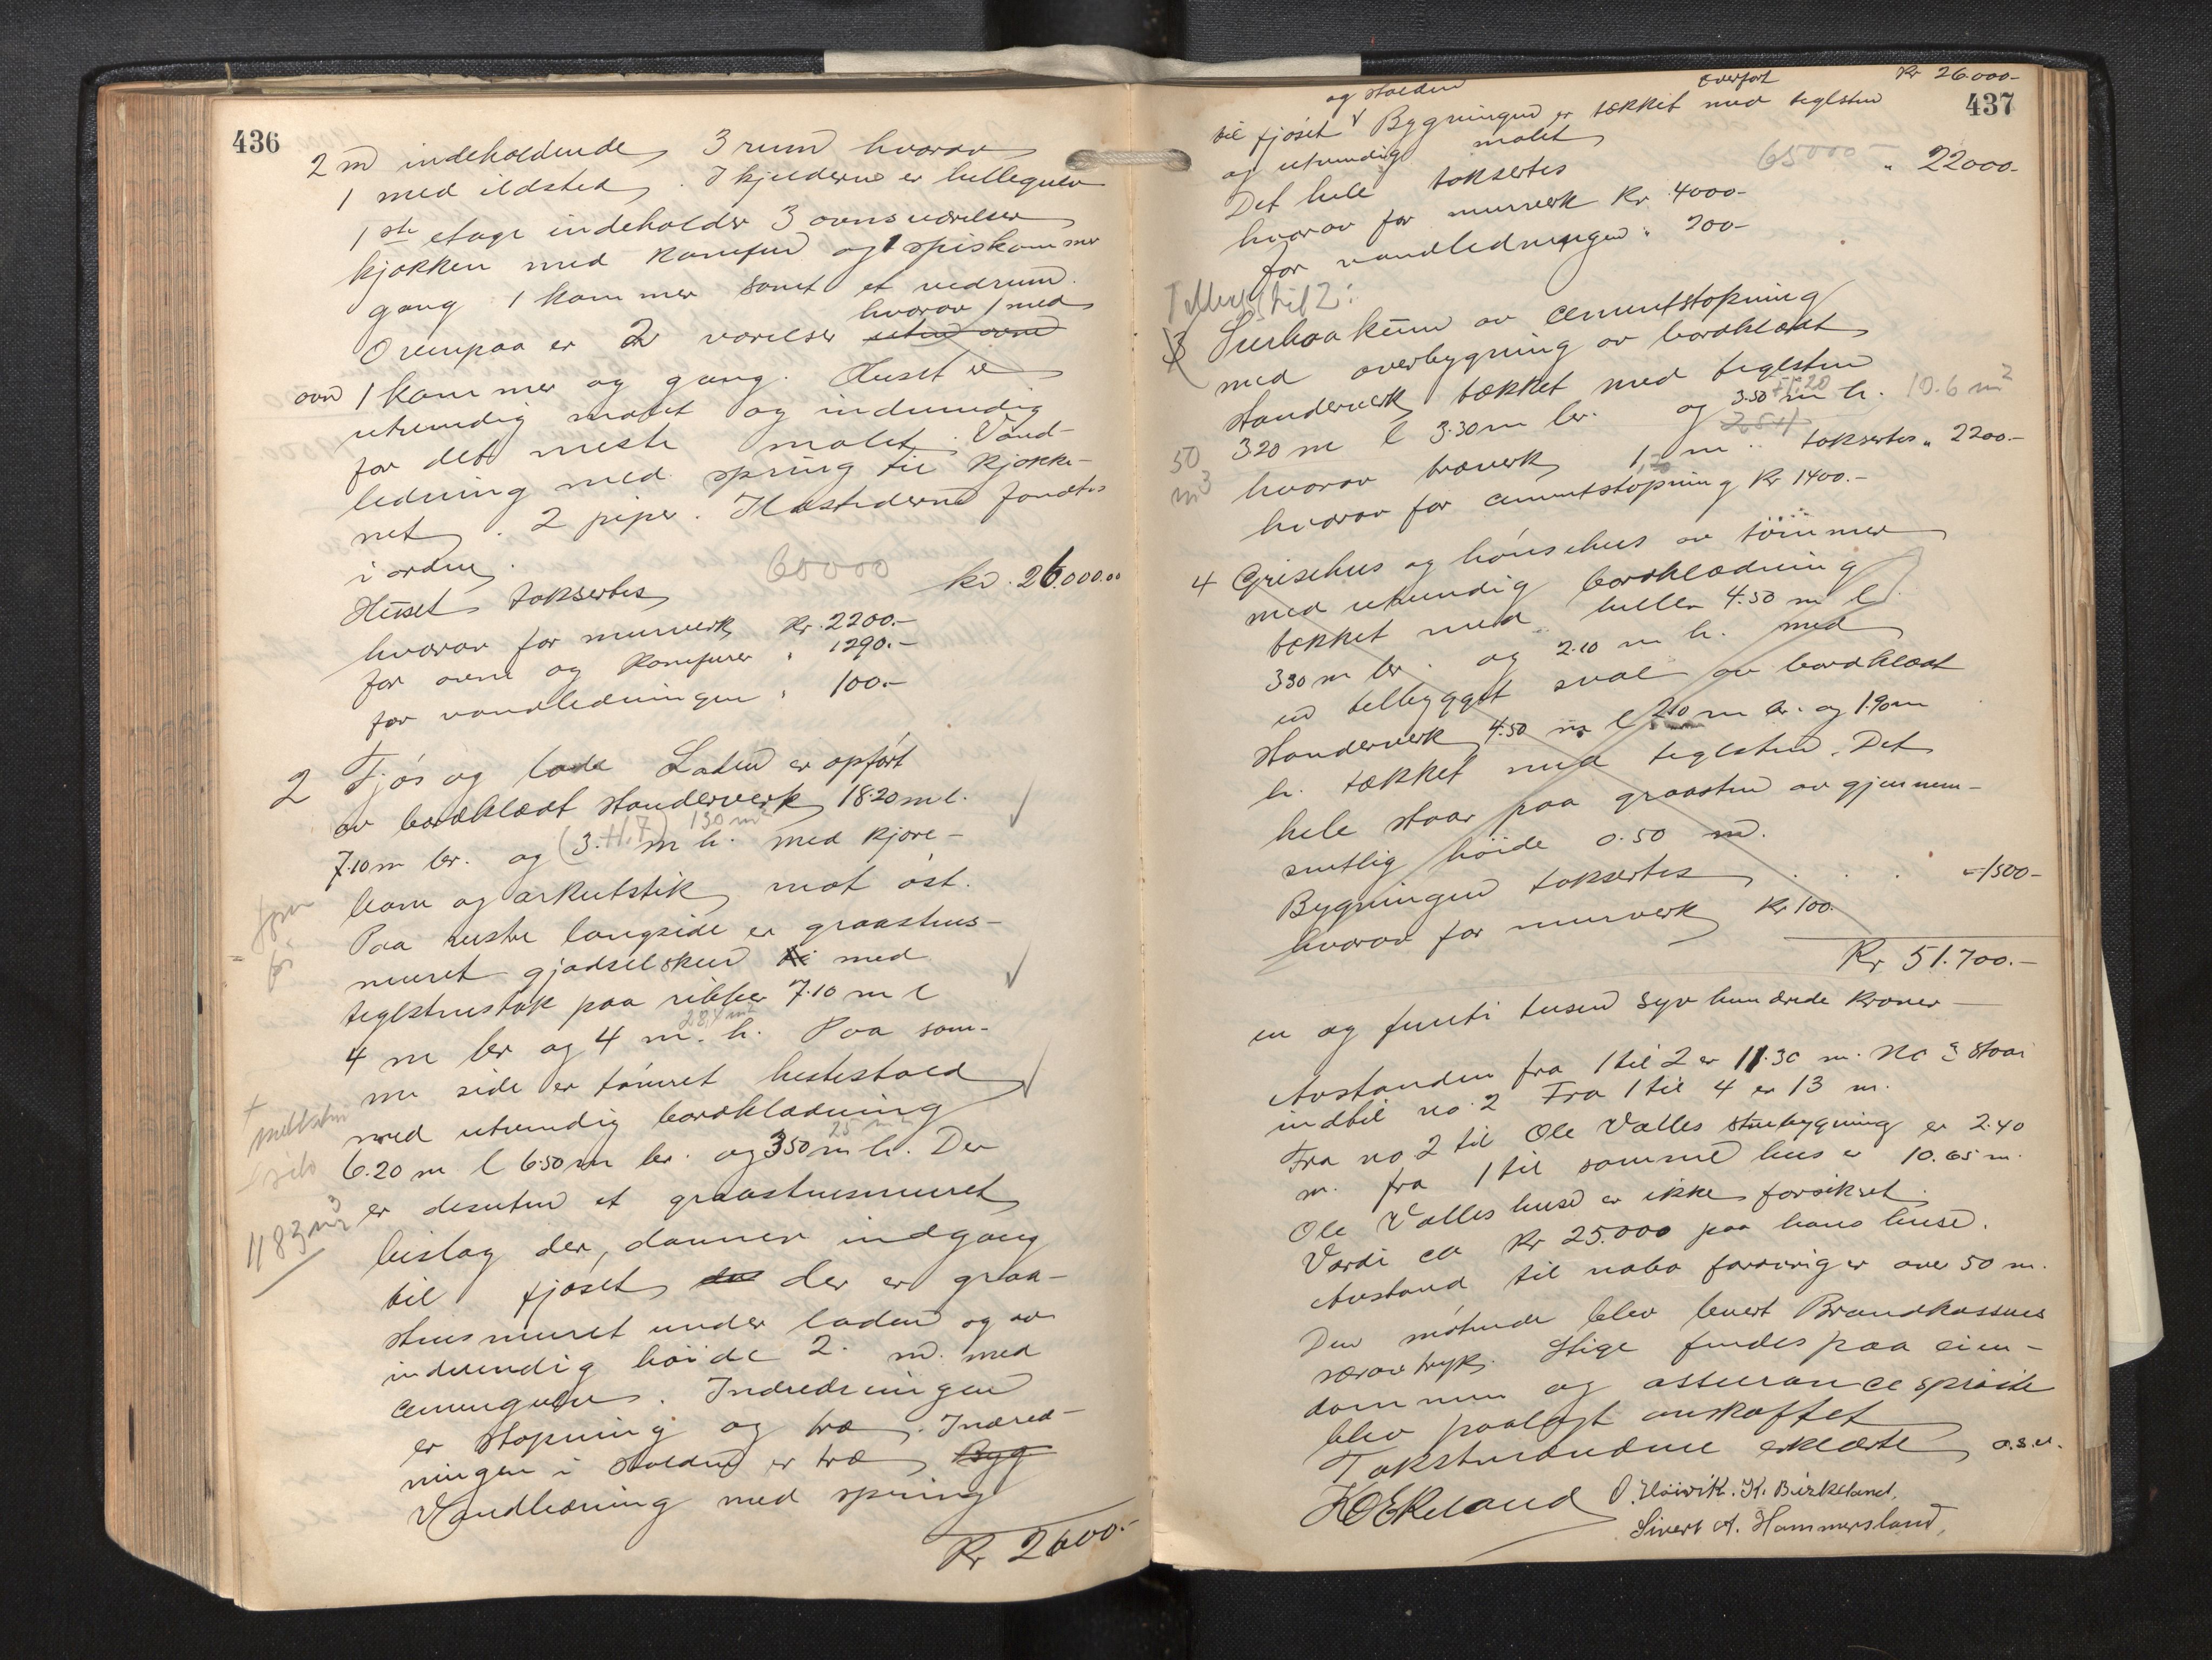 436
2 m indeholdende 3 rum hvorav
1 med ildsted. I kjelderne er hellegulv
1ste etage indeholder 3 ovnsværelser
kjøkken med komfur og 1 spiskammer
gang 1 kammer samt et vedrum.
hvorav 1 med
Ovenpaa er 2 værelser uten ovne
ovn 1 kammer og gang. Huset er
utvendig malet og indvendig
for det meste malet. Vand-
ledning med spring til kjøkke-
net. 2 piper. Ildstederne fandtes
i orden.
60000
Huset taksertes kr. 26.000.00
hvorav for murverk kr. 2200.-
for ovne og komfurer " 1290.-
for vandledningen " 100.-
2 Fjøs og lade Laden er opført
av bordklædt standerverk 18.20 m l.
130 m2
7.10 m br. og (3. H.7) m h. med kjøre-
bom og arkutstik mot øst.
Paa vestre langside er graastens-
muret gjødselskur med
teglstenstak paa ribber 7.10 m l
28,4 m2
4 m br og 4 m. h. Paa sam-
me side er tømret hestestald
med utvendig bordklædning
25 m2
6.20 m l 6.50 m br. og 3.50 m h. Der
+
silo
1183 m3
er desuten et graastensmuret
bislag der danner indgang
til fjøset der er graa-
stensmuret under laden og av
indvendig høide 2. m. med
cementgulv. Indredningen
er støpning og træ. Indred-
ningen i stalden er træ Byg
Vandledning med spring
Kr 2600.-
437
overført Kr 26.000-
og stalden
til fjøset Bygningen er tækket med teglsten
og utvendig malet
65000-
Det hele taksertes " 22000.-
hvorav for murverk Kr. 4000-
for vandledningen " 200-
3 Surhaakum av cementstøpning
med overbygning av bordklædt
standerverk tækket med teglsten
3.20 m l 3.30 m br. og 3.50 m h. 10.6 m2
50
m3
hvorav træverk 1 m taksertes " 2200.-
hvorav for cementstøpning Kr 1400.-
4 Grisehus og hønsehus av tømmer
med utvendig bordklædning
tækket med heller 4.50 m l
3.30 m br. og 2.10 m h. med
en tilbygget sval av bordklædt
standerverk 4.50 m l 2.10 m br. og 1.90 m
h. tækket med teglsten. Det
hele staar paa graasten av gjennem-
snitlig høide 0.50 m.
Bygningen taksertes " 1500-
hvorav for murverk Kr 100.
Kr 51.700.-
en og femti tusen syv hundrede kroner-
Avstanden fra 1 til 2 er 11.30 m. No 3 staar
indtil no. 2 Fra 1 til 4 er 13 m.
Fra no 2 til Ole Valles stuebygning er 2.40
m. fra 1 til samme hus er 10.65 m.
Ole Valles huse er ikke forsikret.
Værdi ca Kr 25.000 paa hans huse.
Avstand til nabo forøvrig er over 50 m.
Den møtende blev levert Brandkassens
særavtryk. Stige findes paa eien-
dommen og assurancesprøite
blev paalagt anskaffet
Takstmændene erklærte o.s.v.
O. Høivik. K. Birkeland.
Sivert A. Hammersland.